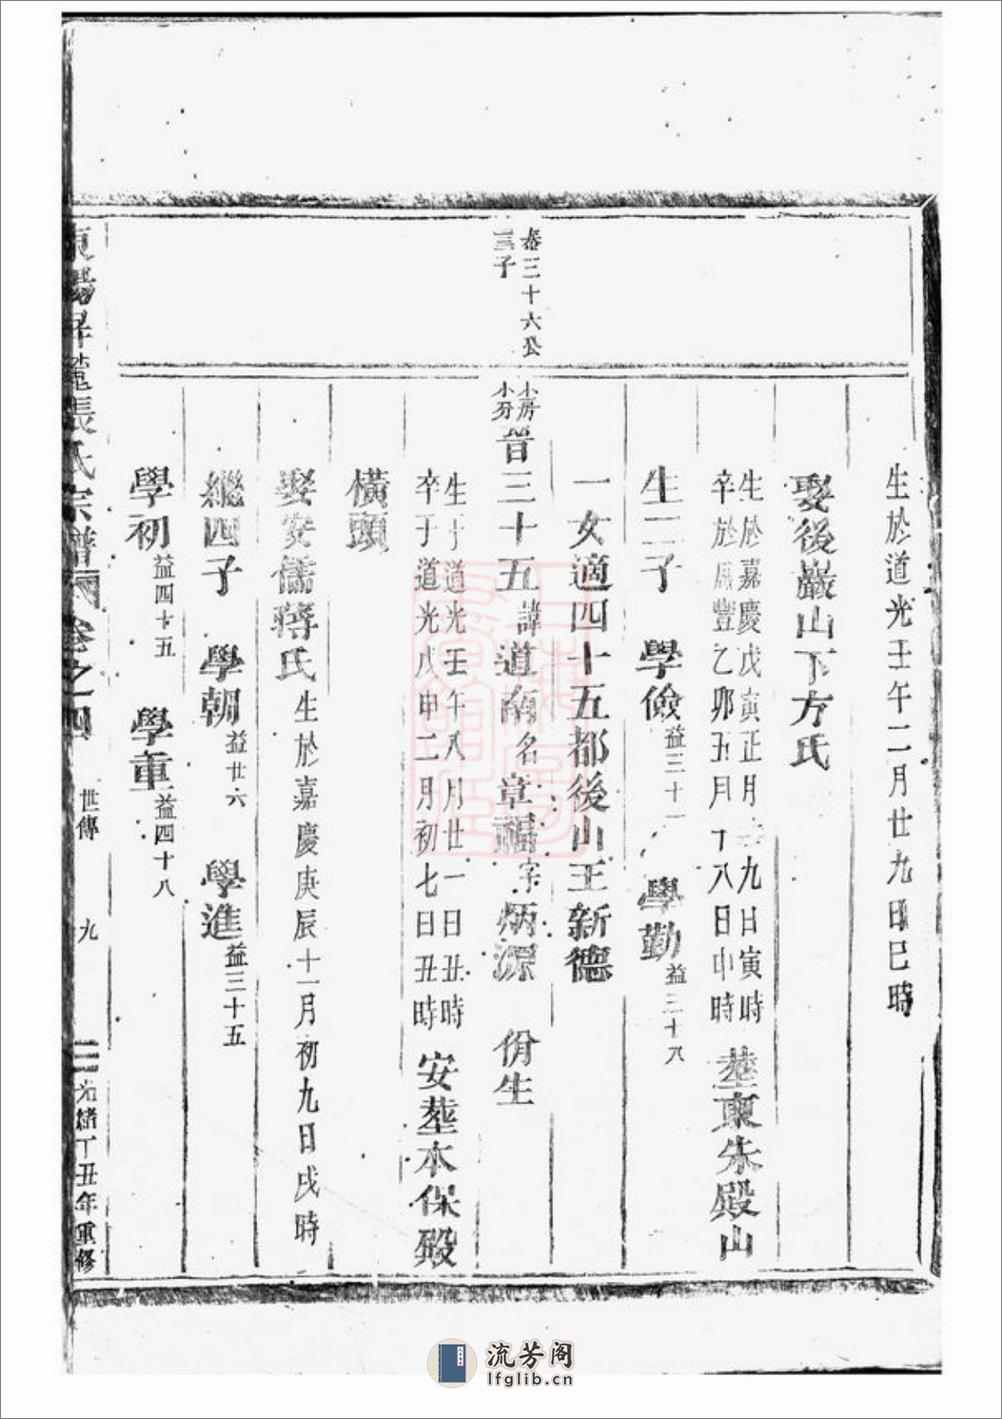 生於道光壬午二月廿九日巳時
娶後巖山下方氏
生於嘉慶戊寅正月 九日寅時
卒於咸豐乙卯五月十八日申時
塟東朱殿山
生二子 學儉益三十一 學勤益三十八
一女適四十五都後山王新德
泰三十六公
三子
小房
小房
晉三十五諱道南名章福字炳源 佾生
生于道光壬午八月廿一日丑時
卒于道光戊申二月初七日丑時
安塟本保殿
橫頭
娶安儒蔣氏生於嘉慶庚辰十一月初九日戌時
繼四子 學朝益廿六 學進益三十五
學初益四十五 學重益四十八
張氏宗譜 卷之四 世傳 九 光緒丁丑年重修
流芳阁
lfglib.cn